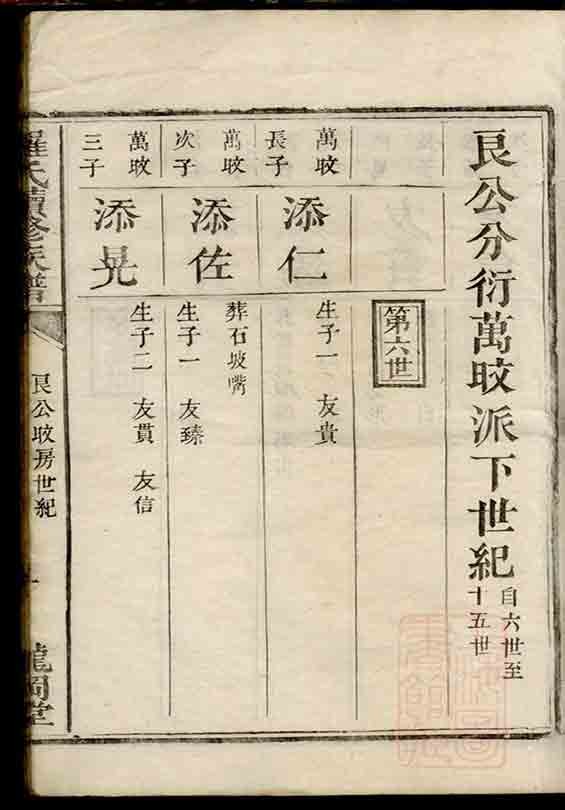 艮公分衍萬旼派下世紀
自六世至
十五世
第六世
萬旼
長子
添仁
生子一 友貴
葬石坡嘴
萬旼
次子
添佐
生子一 友臻
萬旼
三子
添晃
生子二 友貫 友信
羅氏續修族譜
艮公旼房世紀